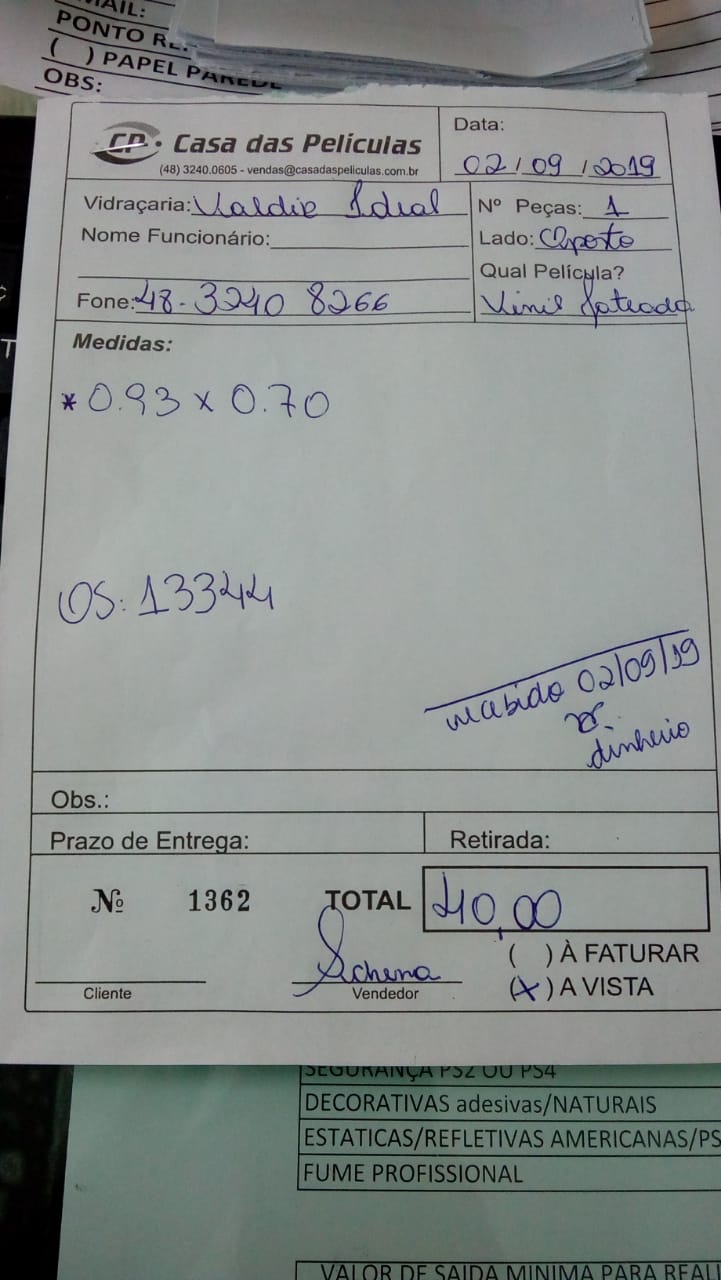 MAIL:
PONTO RE
( ) PAPEL PAREDE
OBS:
CP. Casa das Películas
(48) 3240.0605 - vendas@casadaspeliculas.com.br
Data:
02 / 09 / 2019
Vidraçaria: Valdir Ideal
Nº Peças: 1
Nome Funcionário:
Lado: Oposto
Qual Película?
Fone: 48-3240 8266
Vinil Jateado
Medidas:
* 0.93 x 0.70
OS: 13344
recebido 02/09/19
dinheiro
Obs.:
Prazo de Entrega:
Retirada:
Nº 1362
TOTAL 40,00
( ) À FATURAR
(x) A VISTA
Cliente
Vendedor
SEGURANÇA PS2 OU PS4
DECORATIVAS adesivas/NATURAIS
ESTATICAS/REFLETIVAS AMERICANAS/PS
FUME PROFISSIONAL
VALOR DE SAIDA MINIMA PARA REALI